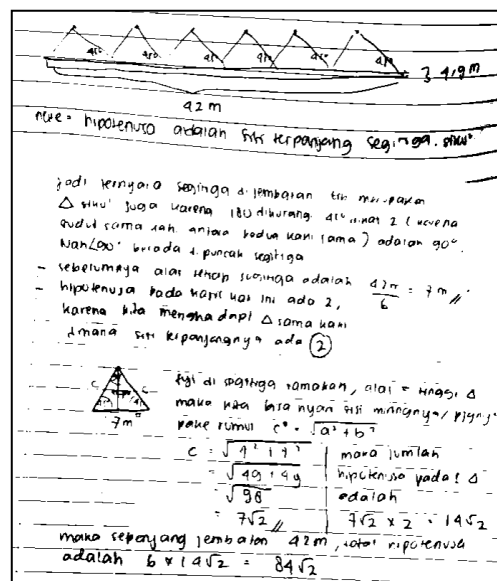 45° 45° 45° 45° 45° 45°
4,9 m
42 m
note = hipotenusa adalah sisi terpanjang segitiga siku²
jadi ternyata segitiga di jembatan tsb merupakan
△ siku² juga karena 180 dikurang 45° 2 (karena
sudut sama antara kedua kaki sama) adalah 90°.
Nah ∠90° berada di puncak segitiga
- sebelumnya alas setiap segitiga adalah 42m/6 = 7m //
- hipotenusa pada kasus ini ada 2,
karena kita menghadapi △ sama kaki
dimana sisi terpanjangnya ada 2
C C
7m
di segitiga samakaki, alas = tinggi △
maka kita bisa nyari sisi miringnya/
pake rumus c = √a² + b²
C = √7² + 7²
= √49 + 49
= √98
= 7√2 //
maka jumlah
hipotenusa pada 1 △
adalah
7√2 × 2 = 14√2
maka sepanjang jembatan 42m, total hipotenusa
adalah 6 × 14√2 = 84√2